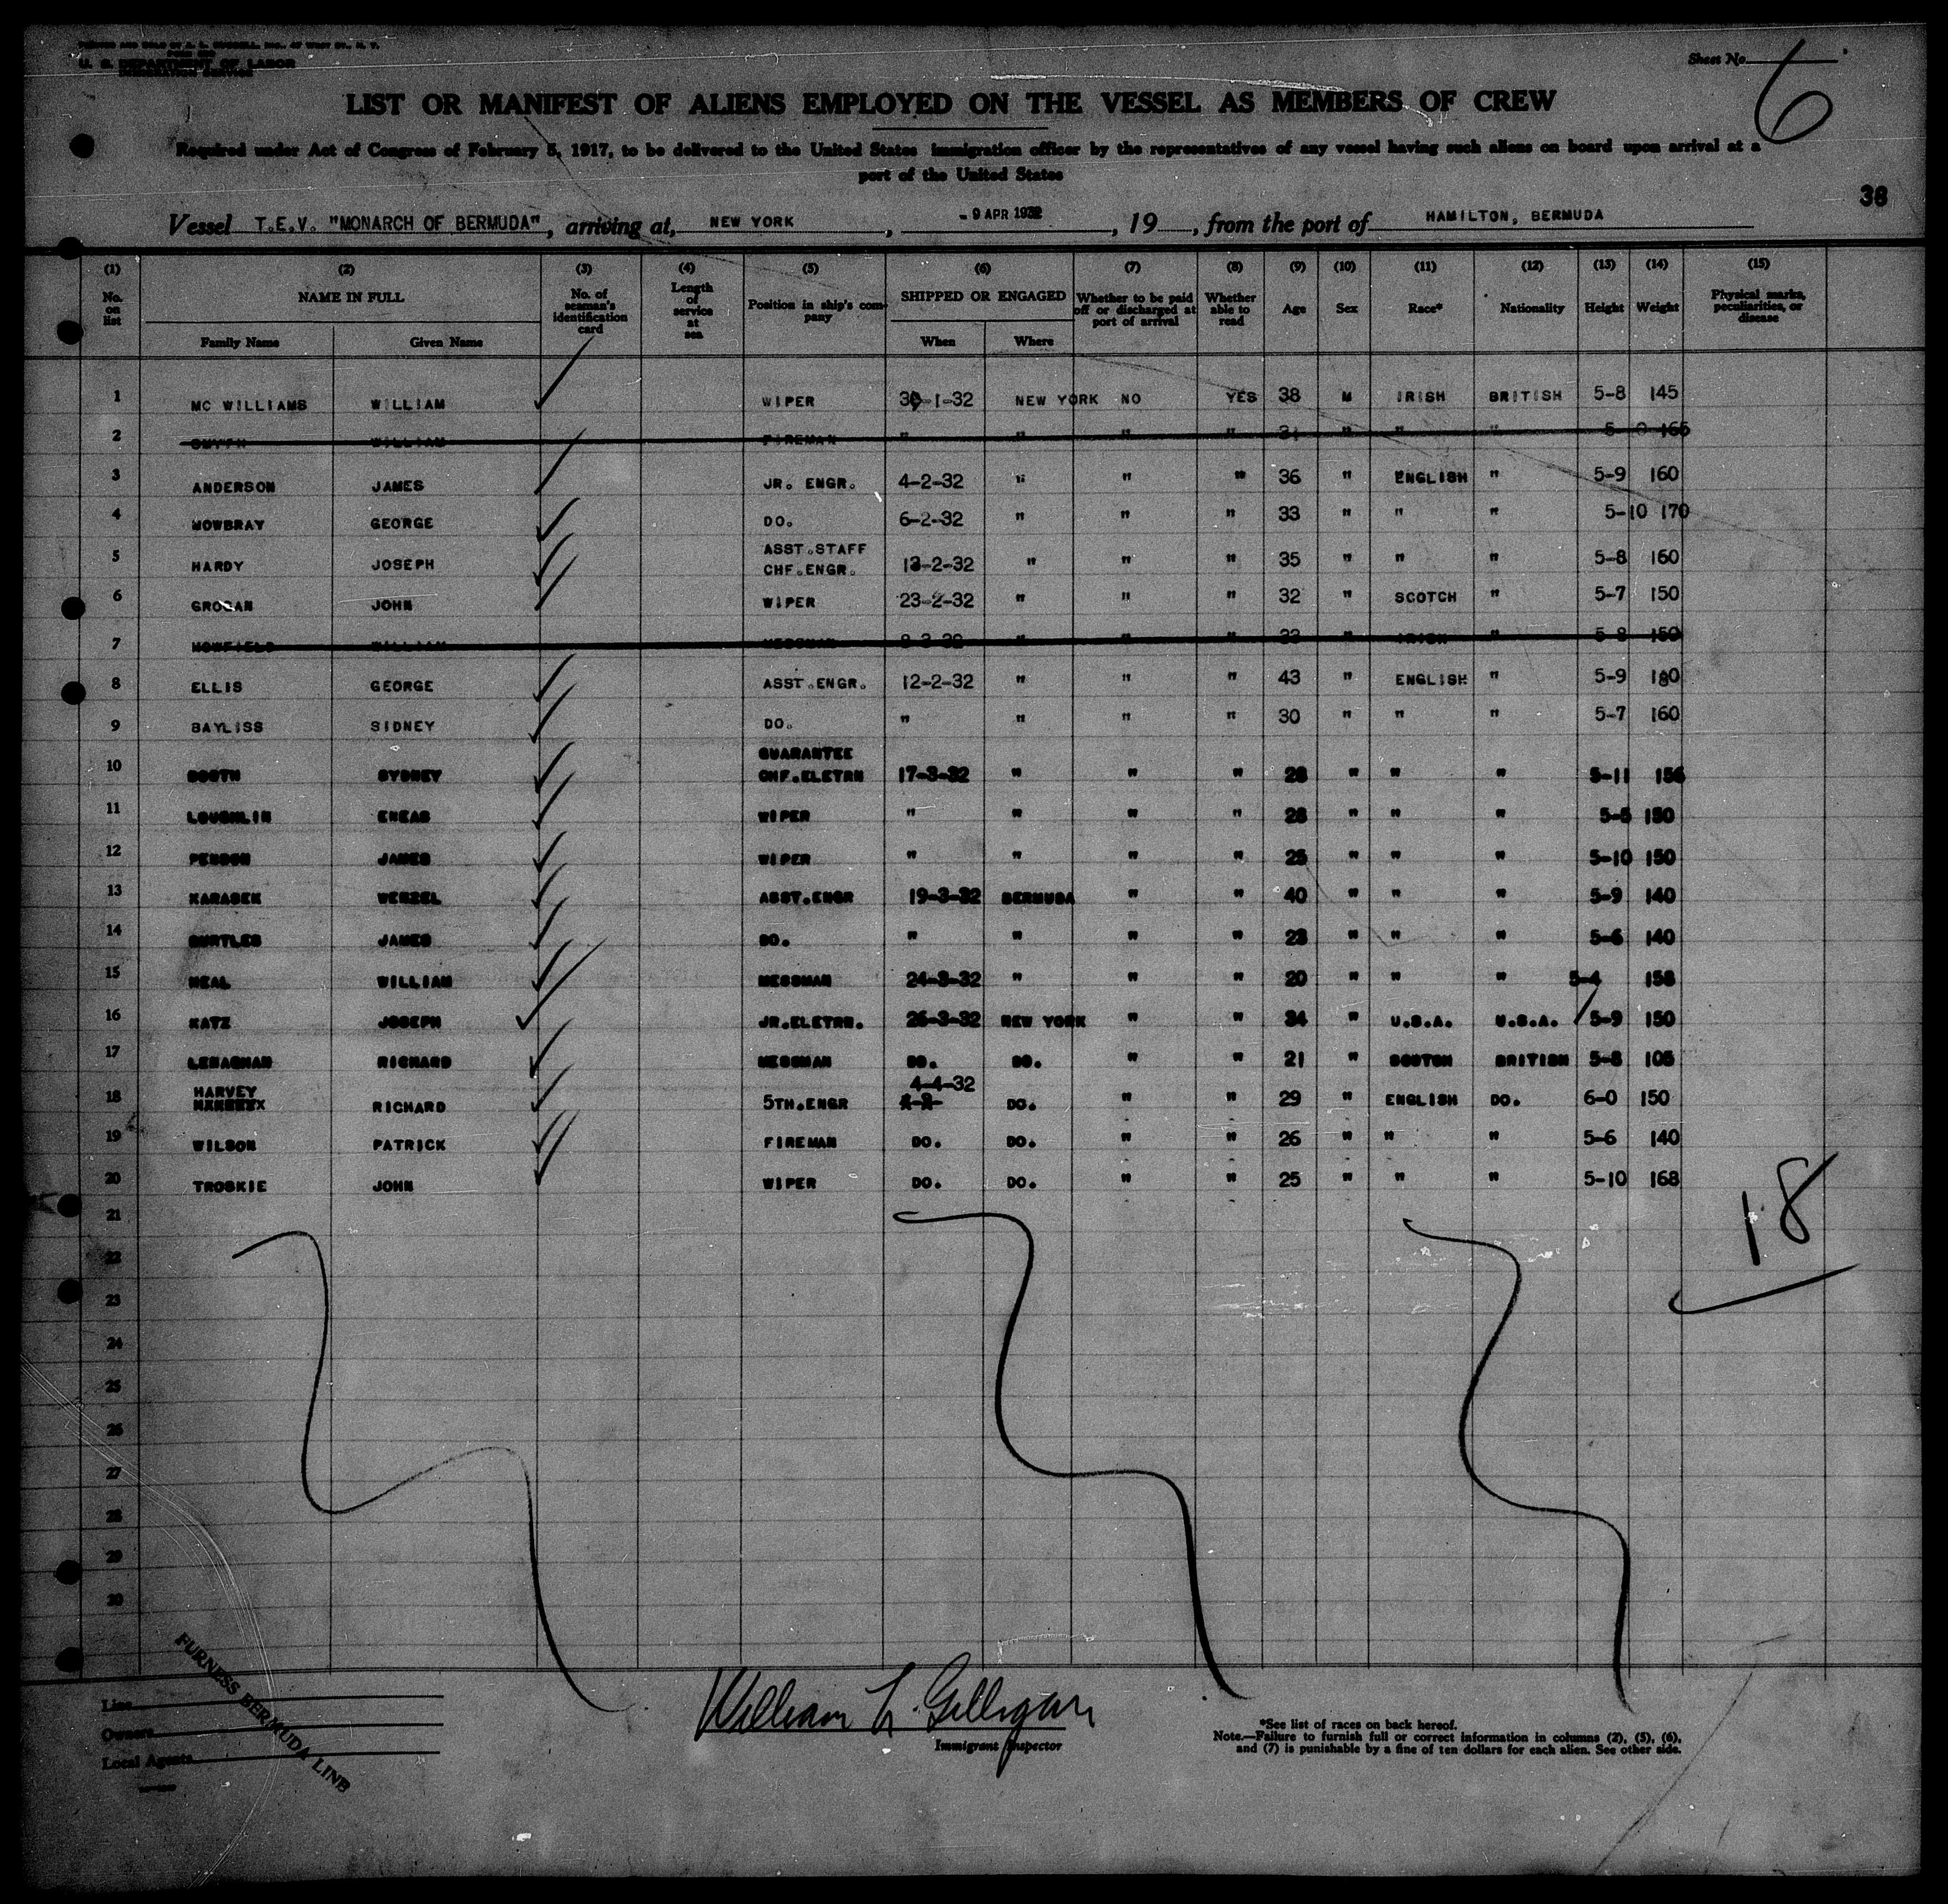 PRINTED AND SOLD BY
U. S. DEPARTMENT OF LABOR
IMMIGRATION SERVICE
Sheet No. 6
LIST OR MANIFEST OF ALIENS EMPLOYED ON THE VESSEL AS MEMBERS OF CREW
Required under Act of Congress of February 5, 1917, to be delivered to the United States immigration officer by the representatives of any vessel having such aliens on board upon arrival at a
port of the United States
38
Vessel T.E.V. "MONARCH OF BERMUDA", arriving at, NEW YORK, - 9 APR 1932, 19 , from the port of HAMILTON, BERMUDA
(1) (2) (3) (4) (5) (6) (7) (8) (9) (10) (11) (12) (13) (14) (15)
No. on list NAME IN FULL Family Name Given Name No. of seaman's identification card Length of service at sea Position in ship's company SHIPPED OR ENGAGED When Where Whether to be paid off or discharged at port of arrival Whether able to read Age Sex Race* Nationality Height Weight Physical marks, peculiarities, or disease
1 MC WILLIAMS WILLIAM WIPER 30-1-32 NEW YORK NO YES 38 M IRISH BRITISH 5-8 145
2 SMYTH WILLIAM FIREMAN " " " " 31 " " " 165
3 ANDERSON JAMES JR. ENGR. 4-2-32 " " " 36 " ENGLISH " 5-9 160
4 MOWBRAY GEORGE DO. 6-2-32 " " " 33 " " " 5-10 170
5 HARDY JOSEPH ASST.STAFF CHF.ENGR. 13-2-32 " " " 35 " " " 5-8 160
6 GROGAN JOHN WIPER 23-2-32 " " " 32 " SCOTCH " 5-7 150
7 WILLIAM MESSMAN " " " 33 " IRISH " 5-8 150
8 ELLIS GEORGE ASST.ENGR. 12-2-32 " " " 43 " ENGLISH " 5-9 180
9 BAYLISS SIDNEY DO. " " " " 30 " " " 5-7 160
10 BOOTH SYDNEY GUARANTEE CHF.ELETRN 17-3-32 " " " 28 " " " 5-11 156
11 LOUGHLIN ENEAS WIPER " " " " 28 " " " 5-5 150
12 PENSON JAMES WIPER " " " " 25 " " " 5-10 150
13 KARASEK WENZEL ASST.ENGR 19-3-32 BERMUDA " " 40 " " " 5-9 140
14 BURTLES JAMES DO. " " " " 28 " " " 5-6 140
15 NEAL WILLIAM MESSMAN 24-3-32 " " " 20 " " " 5-4 158
16 KATZ JOSEPH JR.ELETRN. 26-3-32 NEW YORK " " 34 " U.S.A. U.S.A. 5-9 150
17 LENAGHAN RICHARD MESSMAN DO. DO. " " 21 " SCOTCH BRITISH 5-8 105
18 HARVEY RICHARD 5TH.ENGR 4-4-32 DO. " " 29 " ENGLISH DO. 6-0 150
19 WILSON PATRICK FIREMAN DO. DO. " " 26 " " " 5-6 140
20 TROSKIE JOHN WIPER DO. DO. " " 25 " " " 5-10 168
21
18
22
23
24
25
26
27
28
29
30
FURNESS BERMUDA LINE
Line
Owners
Local Agents
William L. Gilligan
Immigrant Inspector
*See list of races on back hereof.
Note.—Failure to furnish full or correct information in columns (2), (5), (6),
and (7) is punishable by a fine of ten dollars for each alien. See other side.